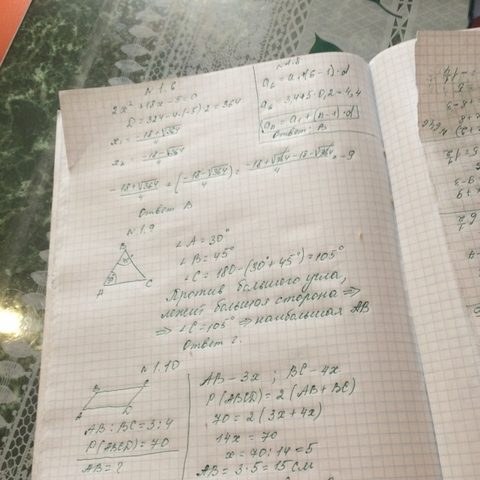 N 1.6
2x² + 18x - 5 = 0
D = 324 - 4·(-5)·2 = 364
x₁ = -18 - √364 / 4
x₂ = -18 - √364 / 4
- 18 + √364 / 4 + (-18 - √364 / 4) = -18 + √364 - 18 - √364 / 4 = -9
Ответ В
N 1.8
a₆ = a₁ + (6 - 1)·d
a₆ = 3,4 + 5·0,2 = 4,4
aₙ = a₁ + (n - 1)·d
Ответ: В.
N 1.9
B
A
C
∠A = 30°
∠B = 45°
∠C = 180 - (30° + 45°) = 105°
Против большего угла,
лежит большая сторона ⇒
⇒ ∠C = 105° ⇒ наибольшая AB
Ответ г.
N 1.10
B
C
A
D
AB : BC = 3 : 4
P(ABCD) = 70
AB = ?
AB - 3x ; BC - 4x
P(ABCD) = 2(AB + BC)
70 = 2(3x + 4x)
14x = 70
x = 70 : 14 = 5
AB = 3·5 = 15 см